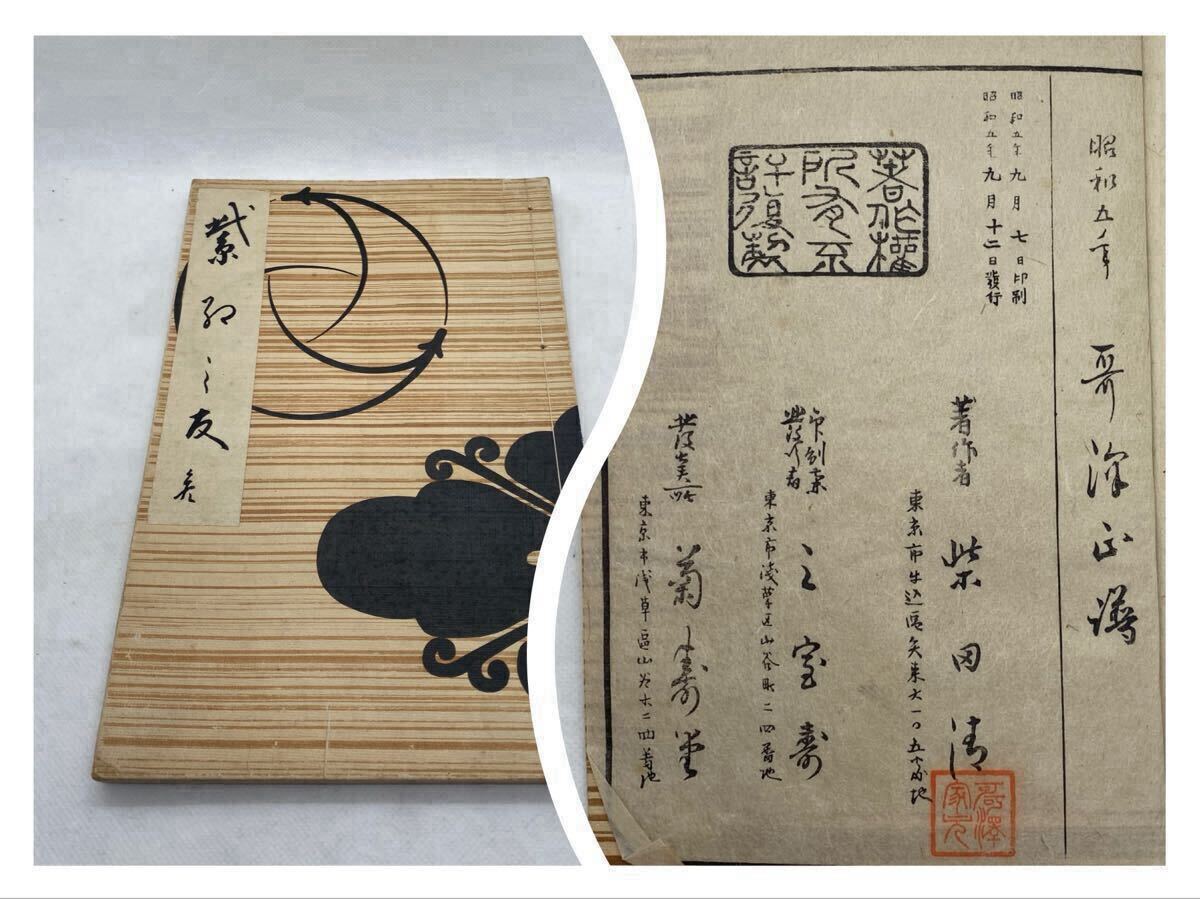 之友
昭和五年　哥澤正譜
昭和五年九月七日印刷
昭和五年九月十二日發行
著作權
所有不
許複製
著作者　柴田清
東京市牛込區矢来町一〇五番地
印刷兼
發行者　室壽
東京市浅草區山谷町二四番地
發賣所　菊壽堂
東京市浅草區山谷町二四番地
哥澤
家元